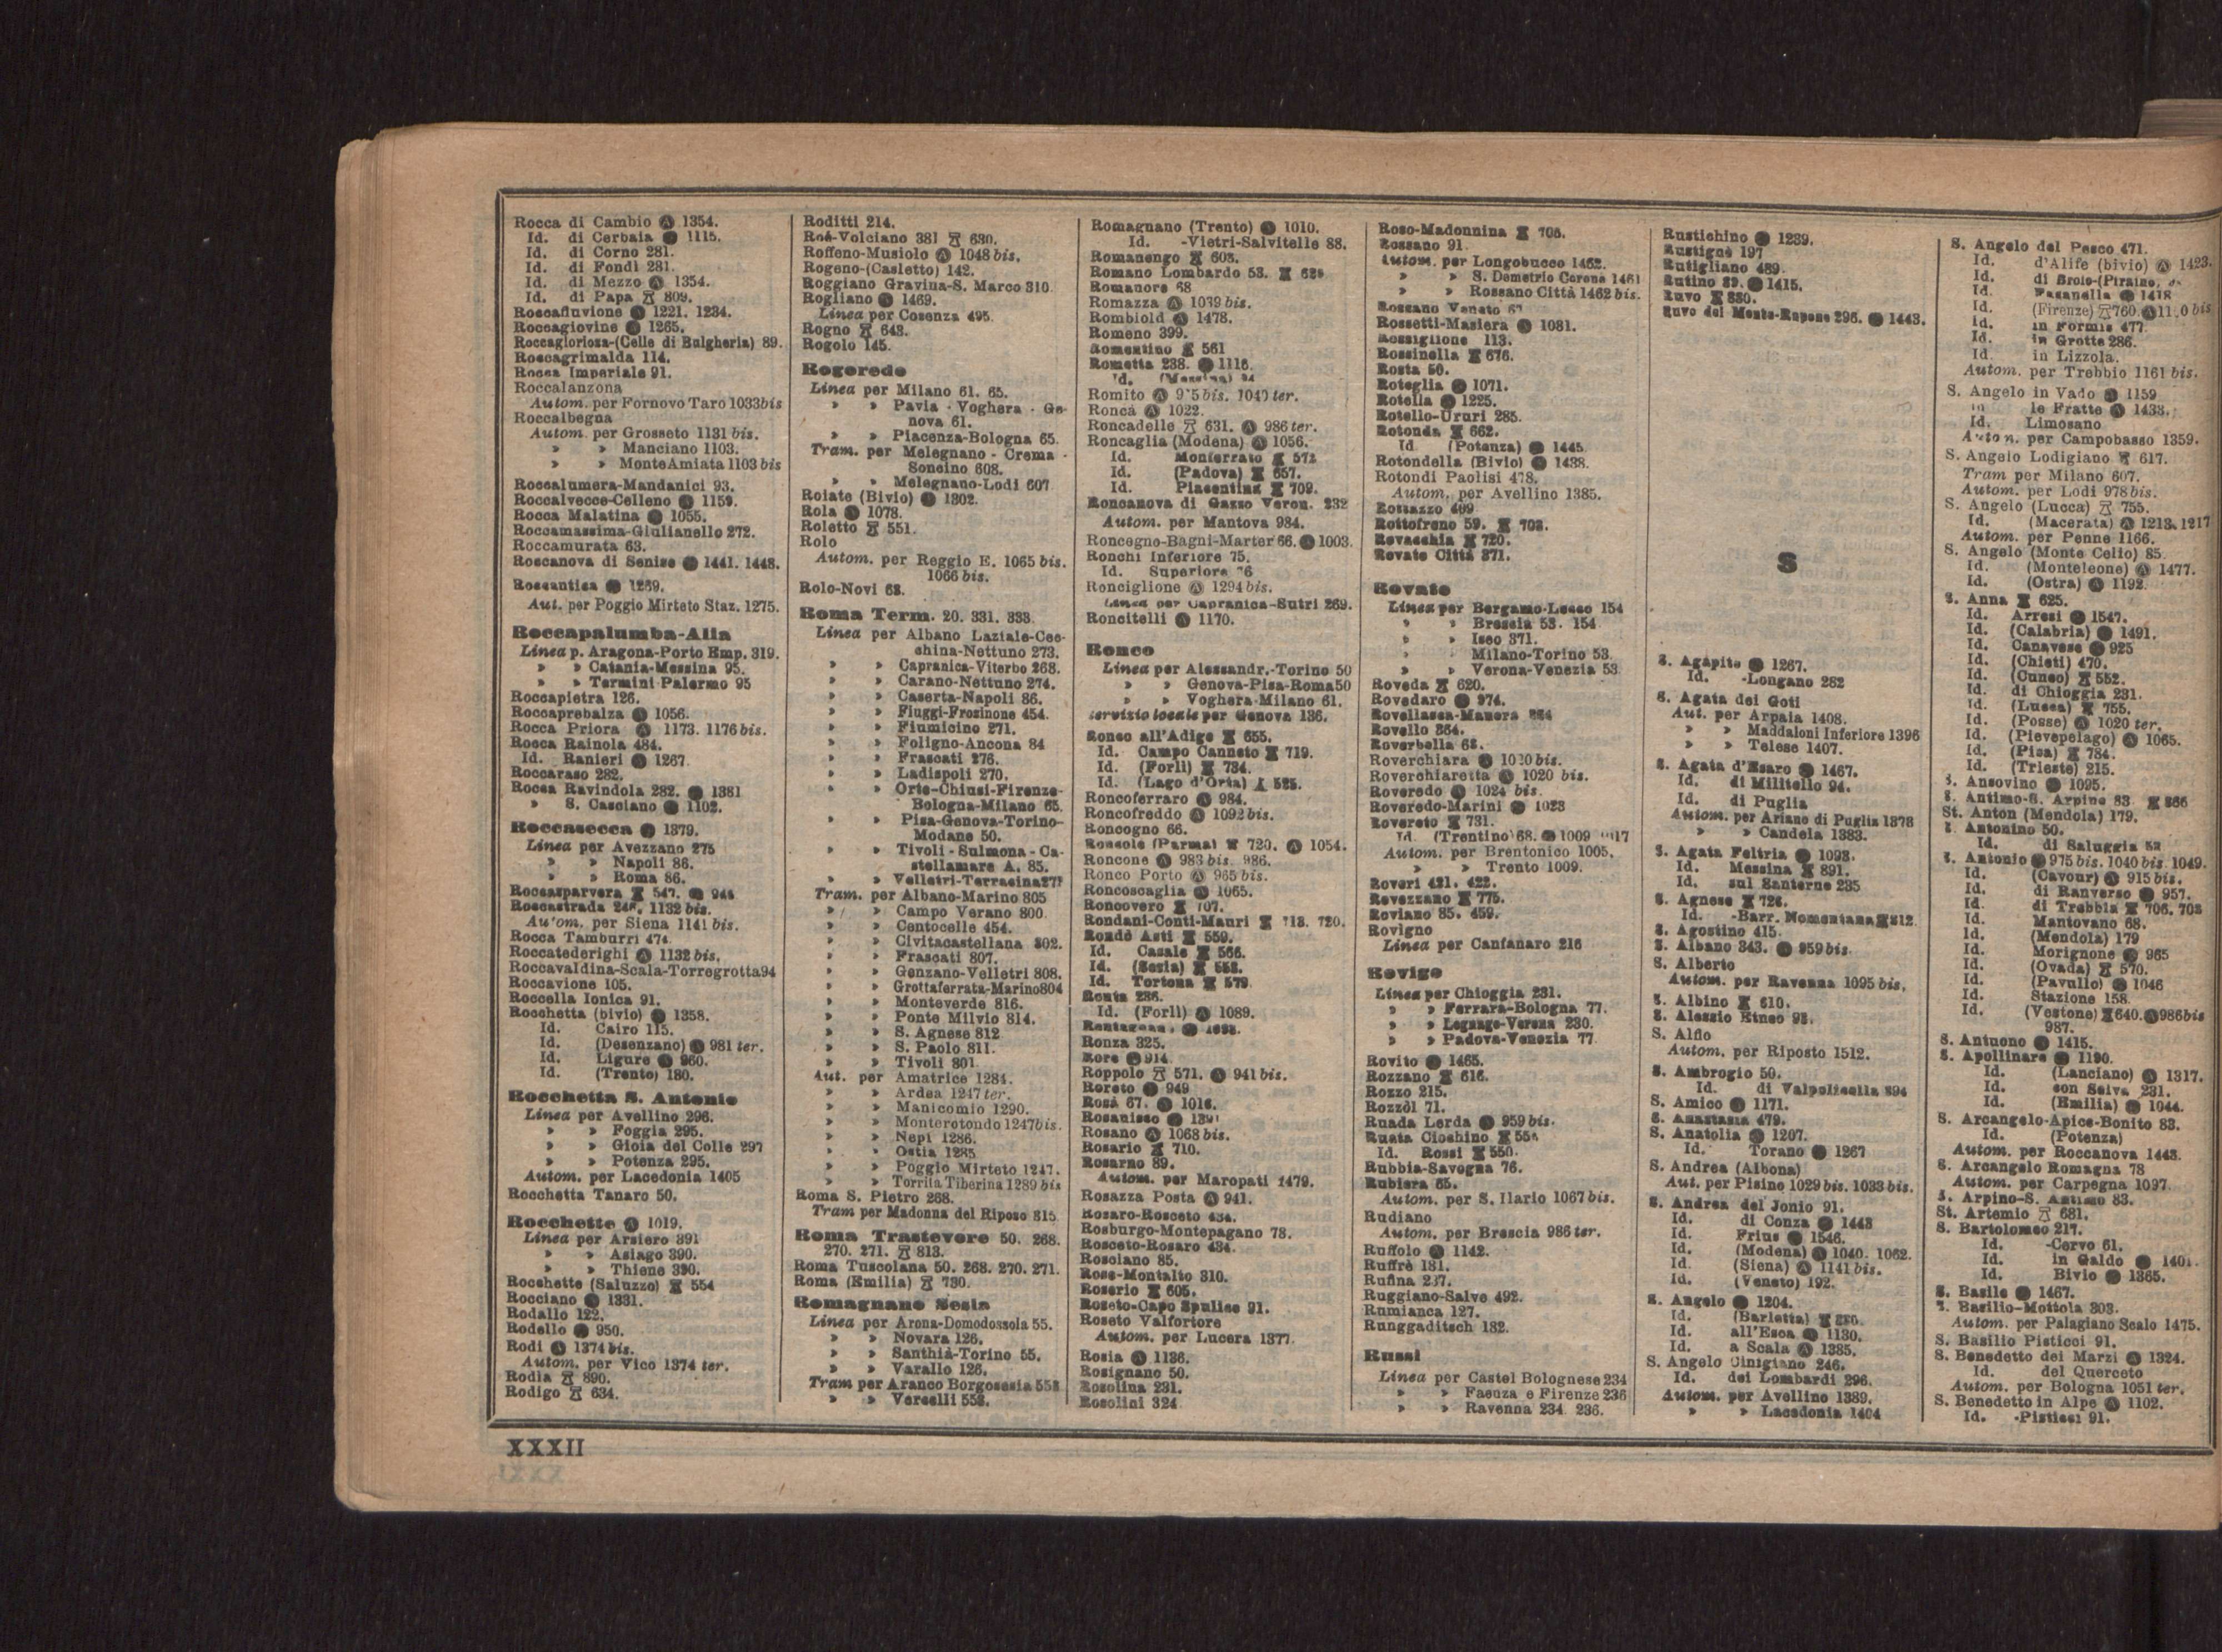 Rocca di Cambio Ⓐ 1354.
Id. di Cerbaia Ⓐ 1115.
Id. di Corno 281.
Id. di Fondi 281.
Id. di Mezzo Ⓐ 1354.
Id. di Papa 809.
Roccafluvione Ⓐ 1221. 1234.
Roccagiovine Ⓐ 1265.
Roccagloriosa-(Celle di Bulgheria) 89.
Roccagrimalda 114.
Rocca Imperiale 91.
Roccalanzona
Autom. per Fornovo Taro 1033bis
Roccalbegna
Autom. per Grosseto 1131 bis.
» » Manciano 1103.
» » Monte Amiata 1103 bis
Roccalumera-Mandanici 93.
Roccalvecce-Celleno Ⓐ 1159.
Rocca Malatina Ⓐ 1055.
Roccamassima-Giulianello 272.
Roccamurata 63.
Roccanova di Senise Ⓐ 1441. 1448.
Roccantica Ⓐ 1269.
Aut. per Poggio Mirteto Staz. 1275.
Roccapalumba-Alia
Linea p. Aragona-Porto Emp. 319.
» » Catania-Messina 95.
» » Termini-Palermo 95
Roccapietra 126.
Roccaprebalza Ⓐ 1056.
Rocca Priora Ⓐ 1173. 1176 bis.
Rocca Rainola 484.
Id. Ranieri Ⓐ 1267
Roccaraso 282.
Rocca Ravindola 282. Ⓐ 1381
» S. Casciano Ⓐ 1102.
Roccasecca Ⓐ 1379.
Linea per Avezzano 275
» » Napoli 86.
» » Roma 86.
Roccasparvera 547. Ⓐ
Roccastrada 1132 bis.
Autom. per Siena 1141 bis.
Rocca Tamburri 474.
Roccatederighi Ⓐ 1132 bis.
Roccavaldina-Scala-Torregrotta 94
Roccavione 105.
Roccella Ionica 91.
Rocchetta (bivio) Ⓐ 1358.
Id. Cairo 115.
Id. (Desenzano) Ⓐ 981 ter.
Id. Ligure Ⓐ 960.
Id. (Trento) 180.
Rocchetta S. Antonio
Linea per Avellino 296.
» » Foggia 295.
» » Gioia del Colle 297
» » Potenza 295.
Autom. per Lacedonia 1405
Rocchetta Tanaro 50.
Rocchette Ⓐ 1019.
Linea per Arsiero 391
» » Asiago 390.
» » Thiene 390.
Rocchette (Saluzzo) 554
Rocciano Ⓐ 1331.
Rodallo 122.
Rodello Ⓐ 950.
Rodi Ⓐ 1374 bis.
Autom. per Vico 1374 ter.
Rodia 890.
Rodigo 634.
Roditti 214.
Roè-Volciano 381 630.
Roffeno-Musiolo Ⓐ 1048 bis.
Rogeno-(Casletto) 142.
Roggiano Gravina-S. Marco 310.
Rogliano Ⓐ 1469.
Linea per Cosenza 495.
Rogno 643.
Rogolo 145.
Rogoredo
Linea per Milano 61. 65.
» » Pavia - Voghera - Genova 61.
» » Piacenza-Bologna 65.
Tram. per Melegnano - Crema -
Soncino 608.
» » Melegnano-Lodi 607
Roiate (Bivio) Ⓐ 1302.
Rola Ⓐ 1078.
Roletto 551.
Rolo
Autom. per Reggio E. 1065 bis.
1066 bis.
Rolo-Novi 68.
Roma Term. 20. 331. 333.
Linea per Albano Laziale-Cec-
china-Nettuno 273.
» » Capranica-Viterbo 268.
» » Carano-Nettuno 274.
» » Caserta-Napoli 86.
» » Fiuggi-Frosinone 454.
» » Fiumicino 271.
» » Foligno-Ancona 84
» » Frascati 276.
» » Ladispoli 270.
» » Orte-Chiusi-Firenze-
Bologna-Milano 65.
» » Pisa-Genova-Torino-
Modane 50.
» » Tivoli - Sulmona - Ca-
stellamare A. 85.
» » Velletri-Terracina
Tram. per Albano-Marino 805
» » Campo Verano 800.
» » Centocelle 454.
» » Civitacastellana 802.
» » Frascati 807.
» » Genzano-Velletri 808.
» » Grottaferrata-Marino 804
» » Monteverde 816.
» » Ponte Milvio 814.
» » S. Agnese 812
» » S. Paolo 811.
» » Tivoli 801
Aut. per Amatrice 1284.
» » Ardea 1247 ter.
» » Manicomio 1290.
» » Monterotondo 1247bis.
» » Nepi 1286.
» » Ostia 1285
» » Poggio Mirteto 1247.
» » Torrita Tiberina 1289 bis
Roma S. Pietro 268.
Tram per Madonna del Riposo 815
Roma Trastevere 50. 268.
270. 271. 813.
Roma Tuscolana 50. 268. 270. 271.
Roma (Emilia) 730.
Romagnano Sesia
Linea per Arona-Domodossola 55.
» » Novara 126.
» » Santhià-Torino 55.
» » Varallo 126.
Tram per Aranco Borgosesia 558
» » Vercelli 558.
Romagnano (Trento) Ⓐ 1010.
Id. -Vietri-Salvitelle 88.
Romanengo 608.
Romano Lombardo 53.
Romanore 68
Romazza Ⓐ 1039 bis.
Rombiolo Ⓐ 1478.
Romeno 399.
Romentino 561
Rometta 238. Ⓐ 1116.
Id. (Messina) 94
Romito Ⓐ 1040 ter.
Roncà Ⓐ 1022.
Roncadelle 631. Ⓐ 986 ter.
Roncaglia (Modena) Ⓐ 1056.
Id. Monferrato 572
Id. (Padova) 657.
Id. Piacentina 709.
Roncanova di Gazzo Veron. 232
Autom. per Mantova 984.
Roncegno-Bagni-Marter 66. Ⓐ 1003.
Ronchi Inferiore 75.
Id. Superiore 76
Ronciglione Ⓐ 1294 bis.
Linea per Capranica-Sutri 269.
Roncitelli Ⓐ 1170.
Ronco
Linea per Alessandr.-Torino 50
» » Genova-Pisa-Roma 50
» » Voghera-Milano 61.
Servizio locale per Genova 136.
Ronco all'Adige 655.
Id. Campo Canneto 719.
Id. (Forlì) 734.
Id. (Lago d'Orta) 525.
Roncoferraro Ⓐ 984.
Roncofreddo Ⓐ 1092 bis.
Roncogno 66.
Roncole (Parma) 720. Ⓐ 1054.
Roncone Ⓐ 983 bis. 986.
Ronco Porto Ⓐ 965 bis.
Roncoscaglia Ⓐ 1065.
Roncovero 707.
Rondani-Conti-Mauri 718. 720.
Rondò Asti 559.
Id. Casale 566.
Id. (Sesia) 558.
Id. Tortona 579
Ronta 236.
Id. (Forlì) Ⓐ 1089.
Ronza 325.
Rore Ⓐ 914.
Roppolo 571. Ⓐ 941 bis.
Roreto Ⓐ 949
Rosà 67. Ⓐ 1016.
Rosanisco Ⓐ
Rosano Ⓐ 1068 bis.
Rosario 710.
Rosarno 89.
Autom. per Maropati 1479.
Rosazza Posta Ⓐ 941.
Rosaro-Rosceto 434.
Rosburgo-Montepagano 78.
Rosceto-Rosaro 434.
Rosciano 85.
Rose-Montalto 310.
Roserio 605.
Roseto-Capo Spulico 91.
Roseto Valfortore
Autom. per Lucera 1377.
Rosia Ⓐ 1136.
Rosignano 50.
Rosolina 231.
Rosolini 324
Roso-Madonnina 708.
Rossano 91.
Autom. per Longobucco 1462.
» » S. Demetrio Corone 1461
» » Rossano Città 1462 bis.
Rossano Veneto 67
Rossetti-Masiera Ⓐ 1081.
Rossiglione 113.
Rossinella 676.
Rosta 50.
Roteglia Ⓐ 1071.
Rotella Ⓐ 1225.
Rotello-Ururi 285.
Rotonda 662.
Id (Potenza) Ⓐ 1445
Rotondella (Bivio) Ⓐ 1438.
Rotondi Paolisi 478.
Autom. per Avellino 1385.
Rottazzo 409
Rottofreno 59. 708.
Rovacchia 720.
Rovate Città 371.
Rovato
Linea per Bergamo-Lecco 154
» » Brescia 53. 154
» » Iseo 371.
» Milano-Torino 53.
» » Verona-Venezia 53.
Roveda 620.
Rovedaro Ⓐ 974.
Rovellasca-Manera 364
Rovello 364.
Roverbella 68.
Roverchiara Ⓐ 1020 bis.
Roverchiaretta Ⓐ 1020 bis.
Roveredo Ⓐ 1024 bis.
Roveredo-Marini Ⓐ 1023
Rovereto 731.
Id. (Trentino) 68. Ⓐ 1009
Autom. per Brentonico 1005.
» » Trento 1009.
Roveri 421. 422.
Rovezzano 775.
Roviano 85. 459.
Rovigno
Linea per Canfanaro 216
Rovigo
Linea per Chioggia 231.
» » Ferrara-Bologna 77.
» » Legnago-Verona 230.
» » Padova-Venezia 77
Rovito Ⓐ 1465.
Rozzano 616.
Rozzo 215.
Rozzòl 71.
Ruada Lerda Ⓐ 959 bis.
Ruata Cioshino
Id. Rossi 550.
Rubbia-Savogna 76.
Rubiera 65.
Autom. per S. Ilario 1067 bis.
Rudiano
Autom. per Brescia 986 ter.
Ruffolo Ⓐ 1142.
Ruffrè 181.
Rufina 237.
Ruggiano-Salve 492.
Rumianca 127.
Runggaditsch 182.
Russi
Linea per Castel Bolognese 234
» » Faenza e Firenze 236
» » Ravenna 234. 236.
Rustichino Ⓐ 1239.
Rustignè 197
Rutigliano 489.
Rutino 89. Ⓐ 1415.
Ruvo 880.
Ruvo del Monte-Rapone 296. Ⓐ 1443.
S
S. Agapito Ⓐ 1267.
Id. -Longano 282
S. Agata dei Goti
Aut. per Arpaia 1408.
» » Maddaloni Inferiore 1396
» » Telese 1407.
S. Agata d'Esaro Ⓐ 1467.
Id. di Militello 94.
Id. di Puglia
Autom. per Ariano di Puglia 1378
» » Candela 1383.
S. Agata Feltria Ⓐ 1093.
Id. Messina 891.
Id. sul Santerno 235
S. Agnese 726.
Id. -Barr. Nomentana 812
S. Agostino 415.
S. Albano 343. Ⓐ 959 bis.
S. Alberto
Autom. per Ravenna 1095 bis.
S. Albino 610.
S. Alessio Etneo 93.
S. Alfio
Autom. per Riposto 1512.
S. Ambrogio 50.
Id. di Valpolicella 394
S. Amico Ⓐ 1171.
S. Anastasia 479.
S. Anatolia Ⓐ 1207.
Id. Torano Ⓐ 1267
S. Andrea (Albona)
Aut. per Pisino 1029 bis. 1033 bis.
S. Andrea del Jonio 91.
Id. di Conza Ⓐ 1443
Id. Frius Ⓐ 1546.
Id. (Modena) Ⓐ 1040. 1062.
Id. (Siena) Ⓐ 1141 bis.
Id. (Veneto) 192.
S. Angelo Ⓐ 1204.
Id. (Barletta) 880.
Id. all'Esca Ⓐ 1130.
Id. a Scala Ⓐ 1385.
S. Angelo Cinigiano 246.
Id. dei Lombardi 296.
Autom. per Avellino 1389.
» » Lacedonia 1404
S. Angelo del Pesco 471.
Id. d'Alife (bivio) Ⓐ 1423.
Id. di Brolo-(Piraino,
Id. Fasanella Ⓐ 1418
Id. (Firenze) 760. Ⓐ bis
Id. in Formis 477.
Id. in Grotte 286.
Id. in Lizzola.
Autom. per Trebbio 1161 bis.
S. Angelo in Vado Ⓐ 1159
Id. le Fratte Ⓐ 1433.
Id. Limosano
Autom. per Campobasso 1359.
S. Angelo Lodigiano 617.
Tram per Milano 607.
Autom. per Lodi 978 bis.
S. Angelo (Lucca) 755.
Id. (Macerata) Ⓐ 1213. 1217
Autom. per Penne 1166.
S. Angelo (Monte Celio) 85.
Id. (Monteleone) Ⓐ 1477.
Id. (Ostra) Ⓐ 1192.
S. Anna 625.
Id. Arresi Ⓐ 1547.
Id. (Calabria) Ⓐ 1491.
Id. Canavese Ⓐ 925
Id. (Chieti) 470.
Id. (Cuneo) 552.
Id. di Chioggia 231.
Id. (Lucca) 755.
Id. (Posse) Ⓐ 1020 ter.
Id. (Pievepelago) Ⓐ 1065.
Id. (Pisa) 784.
Id. (Trieste) 215.
S. Ansovino Ⓐ 1095.
S. Antimo-S. Arpino 83. 866
St. Anton (Mendola) 179.
S. Antonino 50.
Id. di Saluggia 52
S. Antonio Ⓐ 975 bis. 1040 bis. 1049.
Id. (Cavour) Ⓐ 915 bis.
Id. di Ranverso Ⓐ 957.
Id. di Trebbia 706. 708
Id. Mantovano 68.
Id. (Mendola) 179
Id. Morignone Ⓐ 965
Id. (Ovada) 570.
Id. (Pavullo) Ⓐ 1046
Id. Stazione 158.
Id. (Vestone) 640. Ⓐ 986 bis
987.
S. Antuono Ⓐ 1415.
S. Apollinare Ⓐ 1190.
Id. (Lanciano) Ⓐ 1317.
Id. con Selva 231.
Id. (Emilia) Ⓐ 1044.
S. Arcangelo-Apice-Bonito 83.
Id. (Potenza)
Autom. per Roccanova 1448.
S. Arcangelo Romagna 78
Autom. per Carpegna 1097.
S. Arpino-S. Antimo 83.
St. Artemio 681.
S. Bartolomeo 217.
Id. -Cervo 61.
Id. in Galdo Ⓐ 1401.
Id. Bivio Ⓐ 1365.
S. Basile Ⓐ 1467.
S. Basilio-Mottola 303.
Autom. per Palagiano Scalo 1475.
S. Basilio Pisticci 91.
S. Benedetto dei Marzi Ⓐ 1324.
Id. del Querceto
Autom. per Bologna 1051 ter.
S. Benedetto in Alpe Ⓐ 1102.
Id. -Pisticci 91.
XXXII